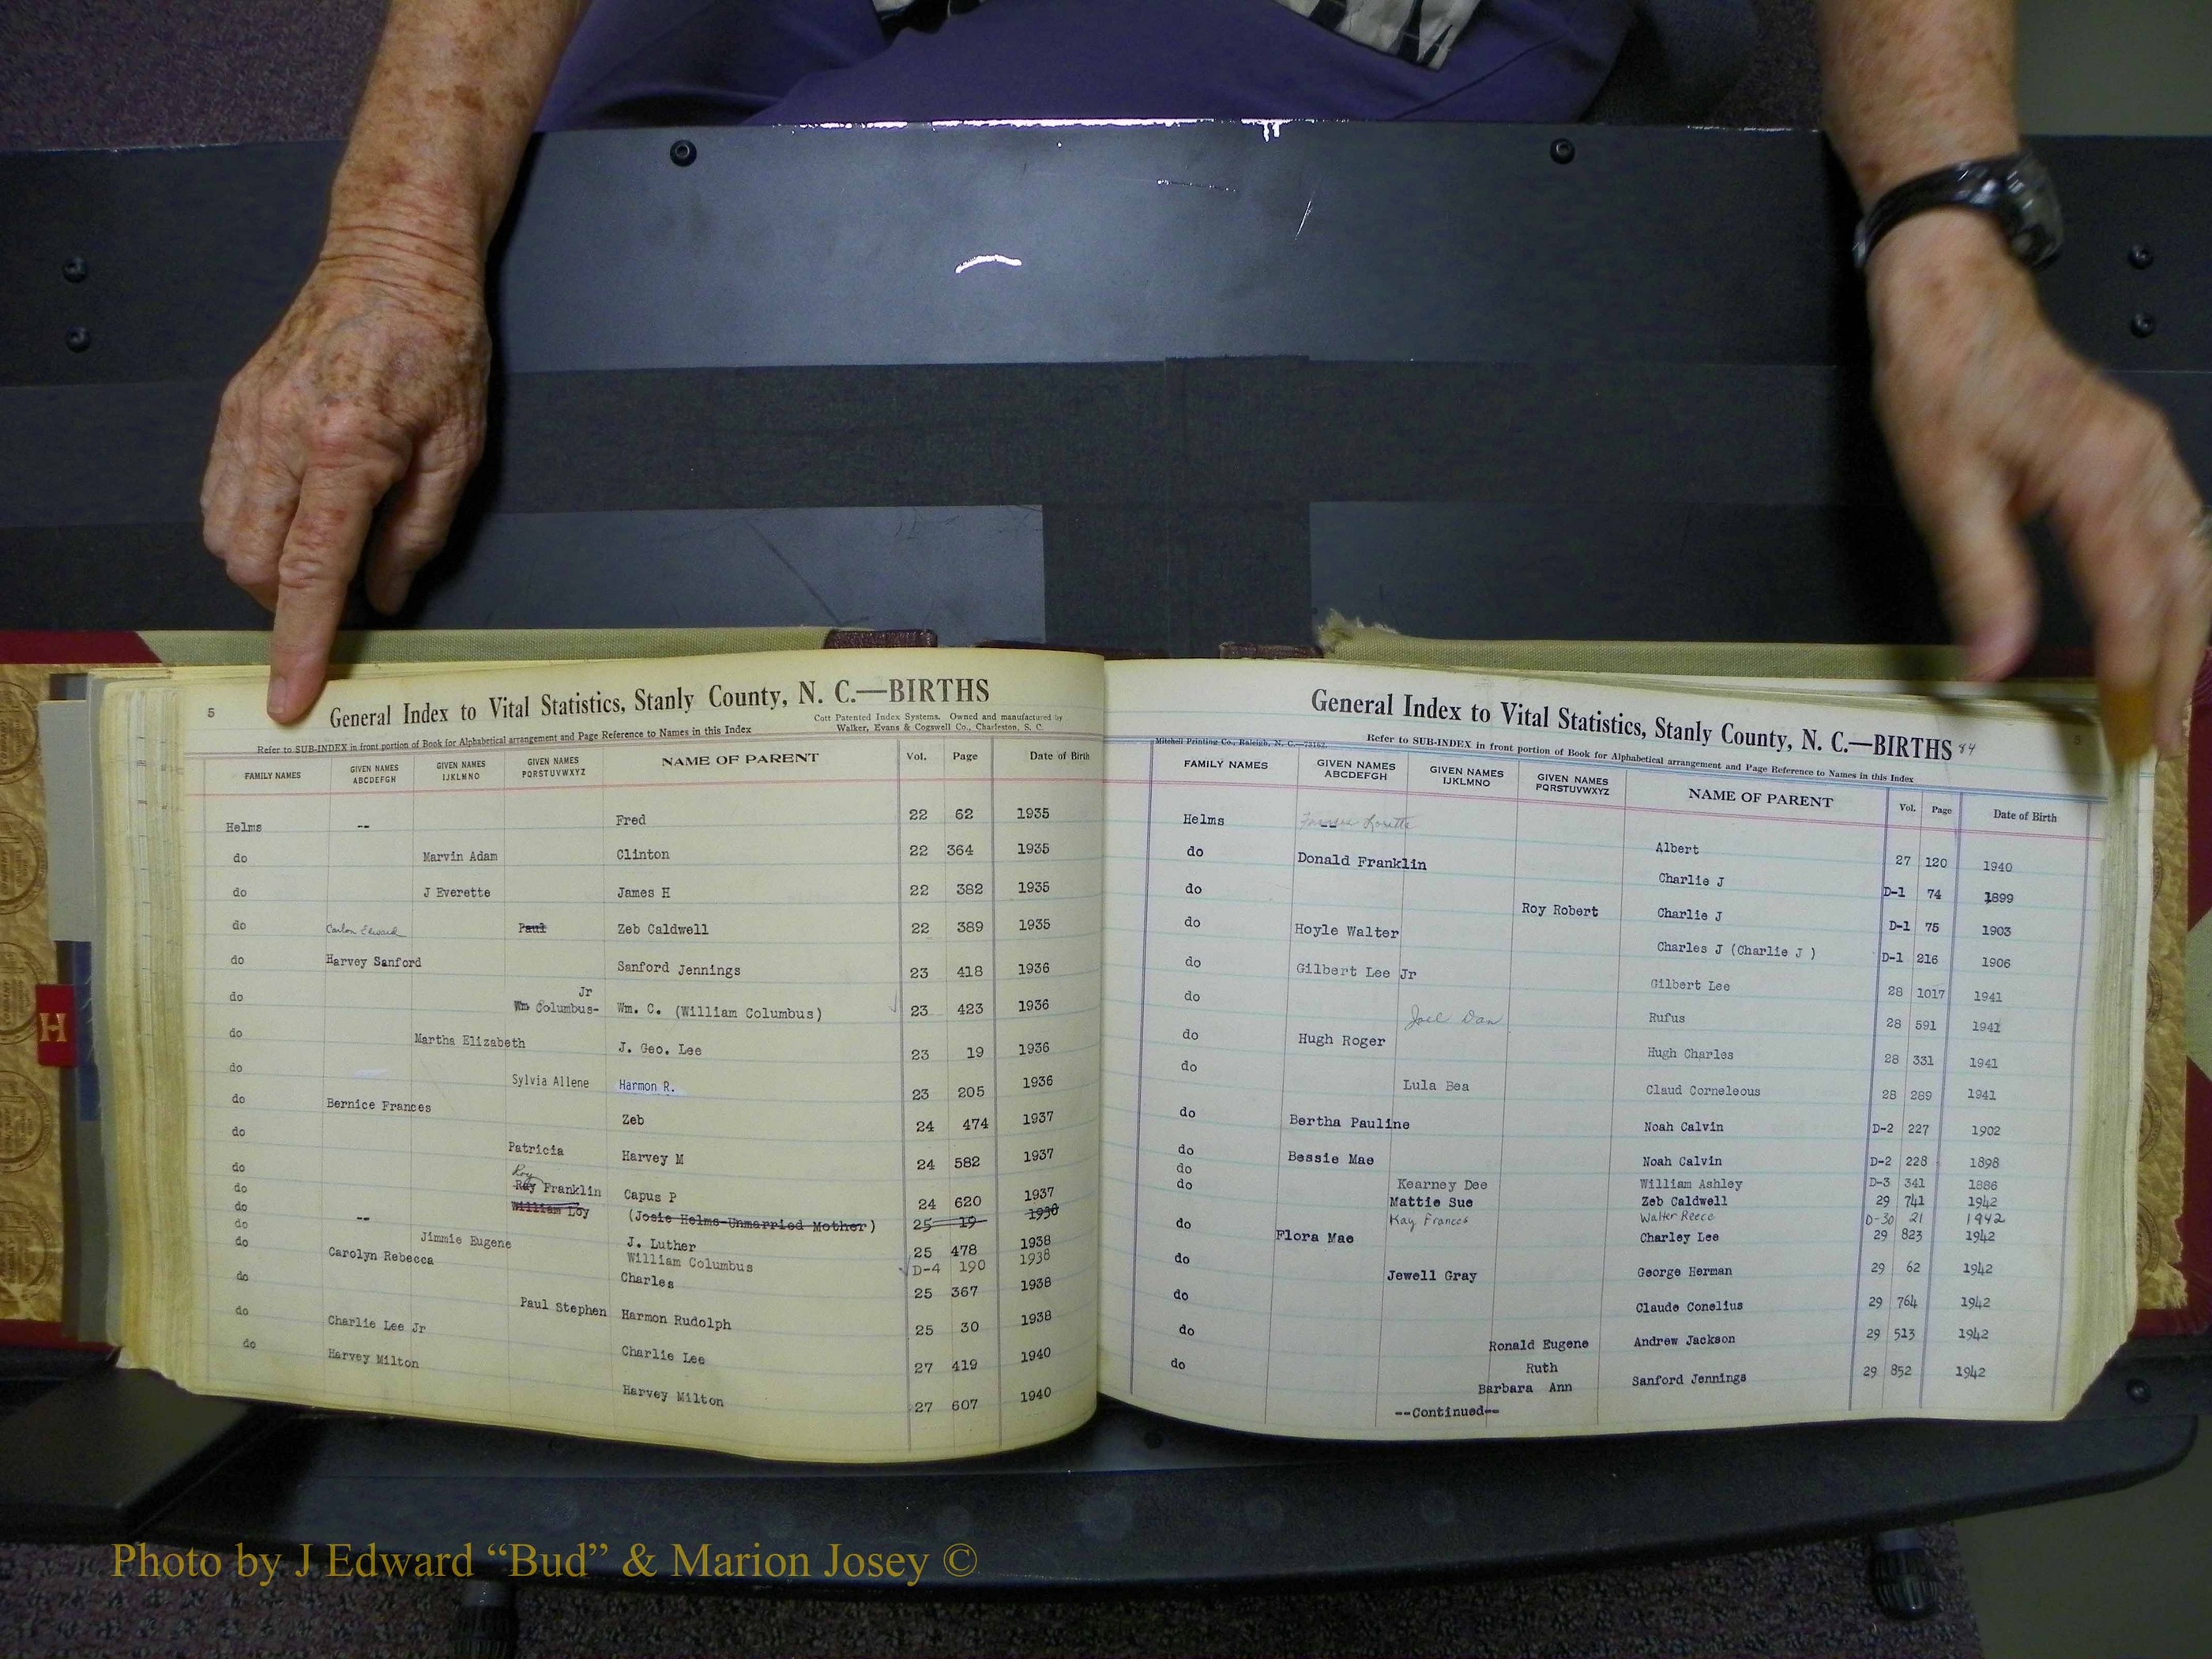 5
General Index to Vital Statistics, Stanly County, N. C.—BIRTHS
Cott Patented Index Systems. Owned and manufactured by
Walker, Evans & Cogswell Co., Charleston, S. C.
Refer to SUB-INDEX in front portion of Book for Alphabetical arrangement and Page Reference to Names in this Index
FAMILY NAMES GIVEN NAMES ABCDEFGH GIVEN NAMES IJKLMNO GIVEN NAMES PQRSTUVWXYZ NAME OF PARENT Vol. Page Date of Birth
Helms -- Fred 22 62 1935
do Marvin Adam Clinton 22 364 1935
do J Everette James H 22 382 1935
do Carlon Edward Paul Zeb Caldwell 22 389 1935
do Harvey Sanford Sanford Jennings 23 418 1936
do Wm Columbus- Jr Wm. C. (William Columbus) 23 423 1936
do Martha Elizabeth J. Geo. Lee 23 19 1936
do Sylvia Allene Harmon R. 23 205 1936
do Bernice Frances Zeb 24 474 1937
do Patricia Harvey M 24 582 1937
do Roy
Ray Franklin Capus P 24 620 1937
do William Loy (Josie Helms-Unmarried Mother) 25 19 1938
do -- J. Luther 25 478 1938
do Jimmie Eugene William Columbus D-4 190 1938
do Carolyn Rebecca Charles 25 367 1938
do Paul Stephen Harmon Rudolph 25 30 1938
do Charlie Lee Jr Charlie Lee 27 419 1940
do Harvey Milton Harvey Milton 27 607 1940
General Index to Vital Statistics, Stanly County, N. C.—BIRTHS 84
5
Mitchell Printing Co., Raleigh, N. C.—73162.
Refer to SUB-INDEX in front portion of Book for Alphabetical arrangement and Page Reference to Names in this Index
FAMILY NAMES GIVEN NAMES ABCDEFGH GIVEN NAMES IJKLMNO GIVEN NAMES PQRSTUVWXYZ NAME OF PARENT Vol. Page Date of Birth
Helms -- Albert 27 120 1940
do Donald Franklin Charlie J D-1 74 1899
do Roy Robert Charlie J D-1 75 1903
do Hoyle Walter Charles J (Charlie J ) D-1 216 1906
do Gilbert Lee Jr Gilbert Lee 28 1017 1941
do Joel Dan Rufus 28 591 1941
do Hugh Roger Hugh Charles 28 331 1941
do Lula Bea Claud Corneleous 28 289 1941
do Bertha Pauline Noah Calvin D-2 227 1902
do Bessie Mae Noah Calvin D-2 228 1898
do Kearney Dee William Ashley D-3 341 1886
do Mattie Sue Zeb Caldwell 29 741 1942
Kay Frances Walter Reece D-30 21 1942
do Flora Mae Charley Lee 29 823 1942
do Jewell Gray George Herman 29 62 1942
do Ronald Eugene Claude Conelius 29 764 1942
do Ruth Andrew Jackson 29 513 1942
do Barbara Ann Sanford Jennings 29 852 1942
--Continued--
H
Photo by J Edward “Bud” & Marion Josey ©